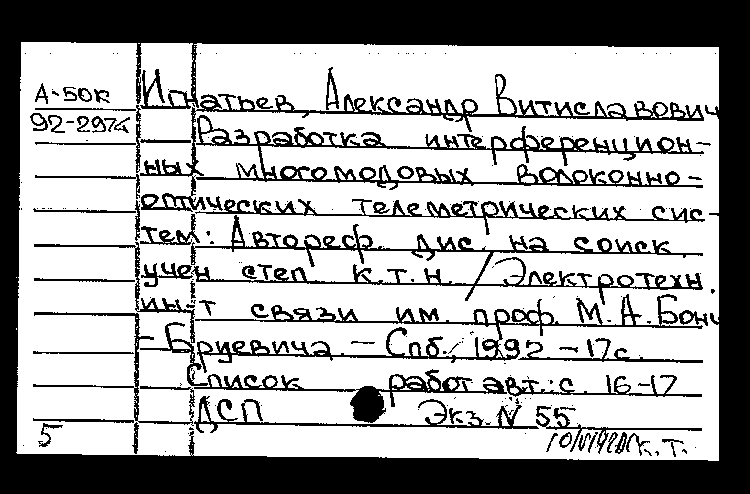 А-50к Игнатьев, Александр Витиславович
92-297к Разработка интерференцион-
ных многомодовых волоконно-
оптических телеметрических сис-
тем: Автореф. дис. на соиск.
учен степ к.т.н. / Электротехн.
ин-т связи им. проф. М.А. Бонч
-Бруевича. - Спб., 1992 - 17с.
Список работ авт.: с. 16-17
ДСП Экз. N 55.
5 к.т.